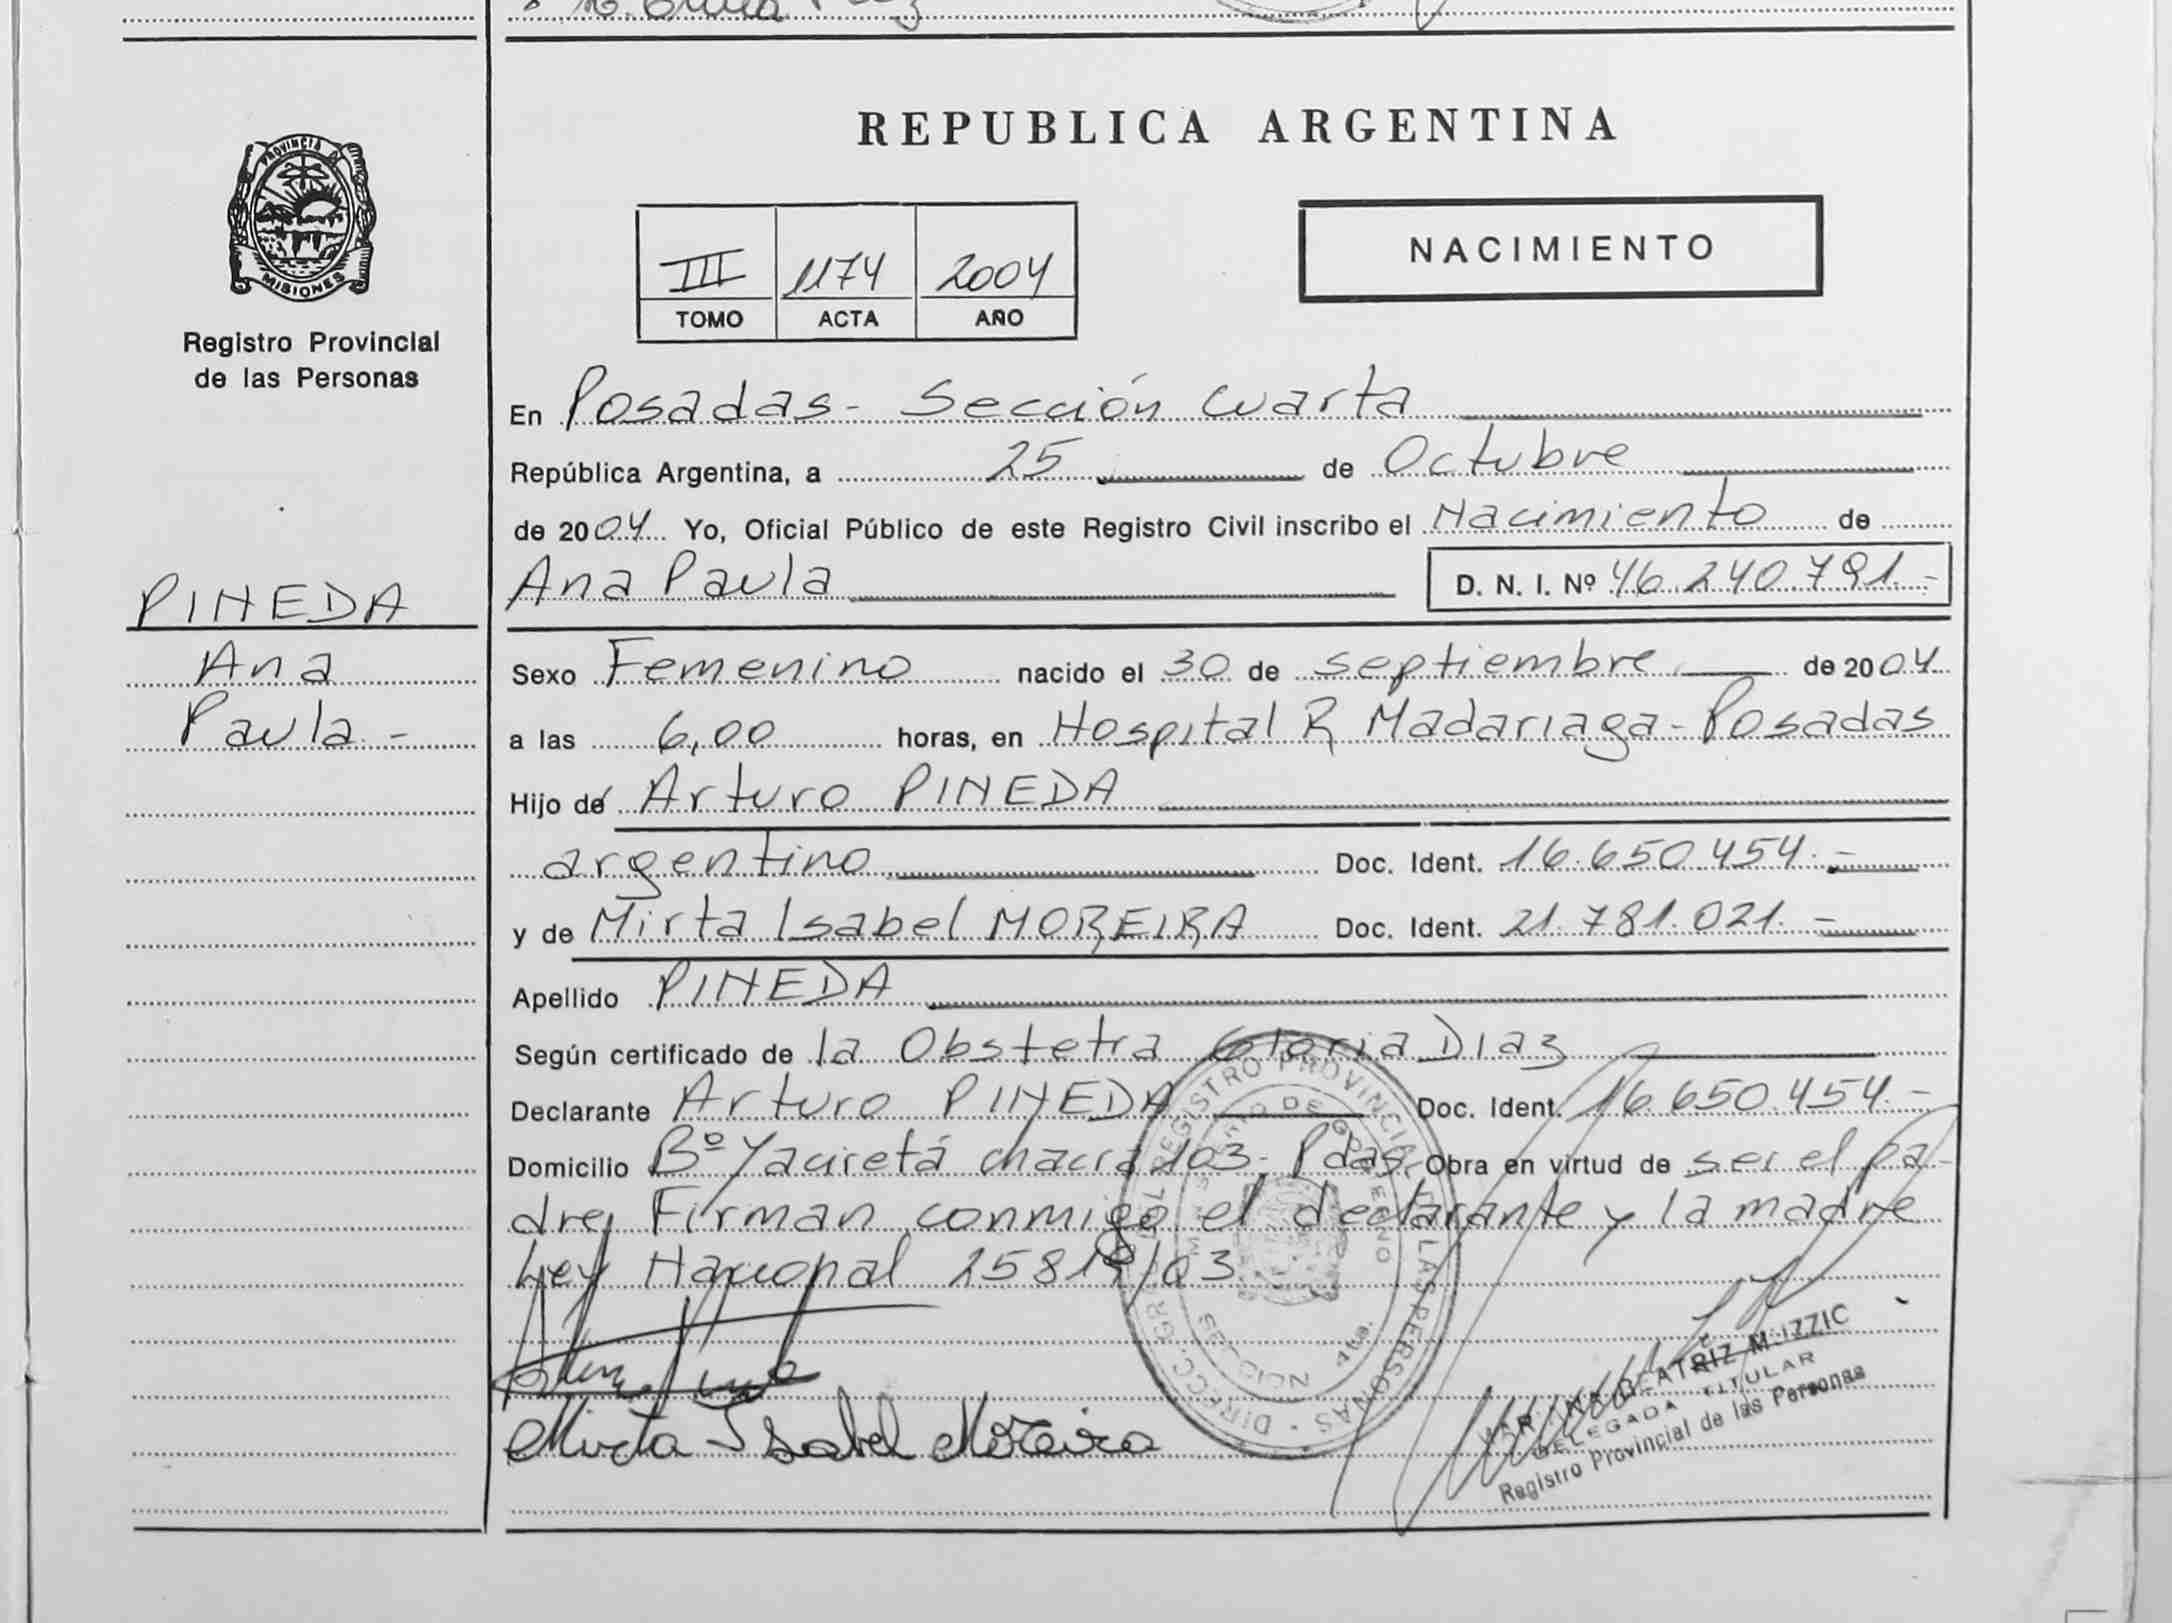 REPUBLICA ARGENTINA
PROVINCIA D
MISIONES
Registro Provincial
de las Personas
III 1174 2004
TOMO ACTA AÑO
NACIMIENTO
En Posadas- Sección Cuarta
República Argentina, a 25 de Octubre
de 2004 Yo, Oficial Público de este Registro Civil inscribo el Nacimiento de
Ana Paula D. N. I. Nº 46.240.791.-
PINEDA
Ana
Paula.-
Sexo Femenino nacido el 30 de septiembre de 2004
a las 6,00 horas, en Hospital R Madariaga-Posadas
Hijo de Arturo PINEDA
argentino Doc. Ident. 16.650.454.-
y de Mirta Isabel MOREIRA Doc. Ident. 21.781.021.-
Apellido PINEDA
Según certificado de la Obstetra Gloria Diaz
Declarante Arturo PINEDA Doc. Ident. 16.650.454.-
Domicilio Bº Yacireta chacra 103- Pdas. Obra en virtud de ser el pa-
dre, Firman conmigo el declarante y la madre
Ley Nacional 25819/03
Mirta Isabel Moreira
DIRECC. GRAL DEL REGISTRO PROVINCIAL DE LAS PERSONAS
DE GOBIERNO
BEATRIZ
DELEGADA TITULAR
Registro Provincial de las Personas